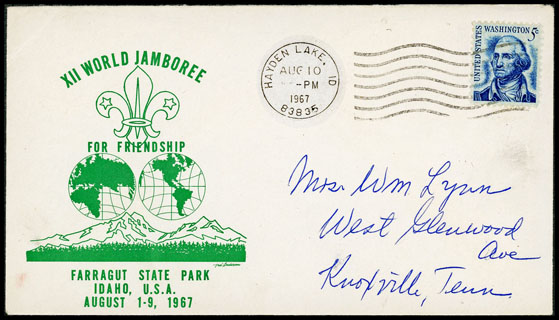 XII WORLD JAMBOREE
FOR FRIENDSHIP
FARRAGUT STATE PARK
IDAHO, U.S.A.
AUGUST 1-9, 1967
HAYDEN LAKE, ID
AUG 10
PM
1967
83835
UNITED STATES
WASHINGTON 5c
Mrs. Wm Lynn
West Glenwood
Ave
Knoxville, Tenn.